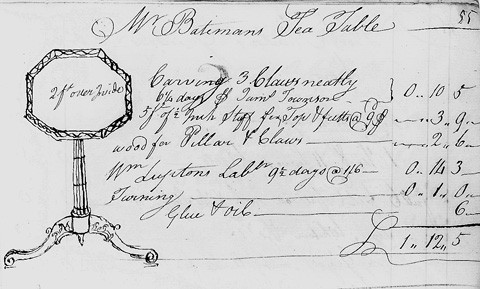 Mr Batemans Tea Table
55
2 ft over Inside
Carving 3 Claws neatly
6 1/2 days Saml Townson 0 ,, 10 5
5 ft of 1/2 Inch Stuff for Top & feet @ 9 ,, 3 ,, 9
wood for Pillar & Claws ,, 2 ,, 6
Wm Luptons Labr 9 1/2 days @ 1/6 0 ,, 14 3
Turning 0 ,, 1 ,, 0
Glue & oil 6
L 1 ,, 12 ,, 5